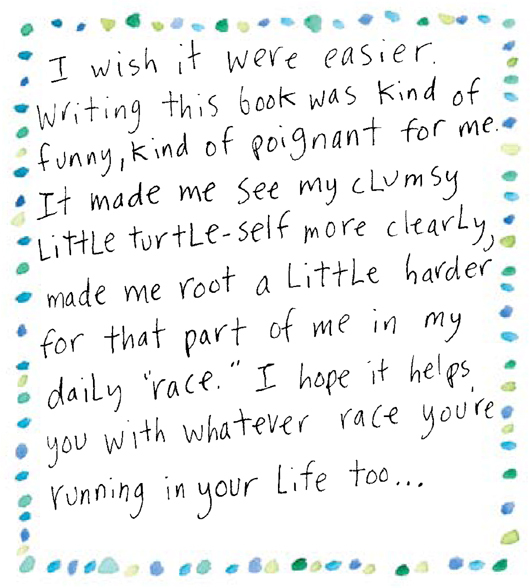 I wish it were easier.
Writing this book was kind of
funny, kind of poignant for me.
It made me see my clumsy
little turtle-self more clearly,
made me root a little harder
for that part of me in my
daily "race." I hope it helps
you with whatever race you're
running in your life too...